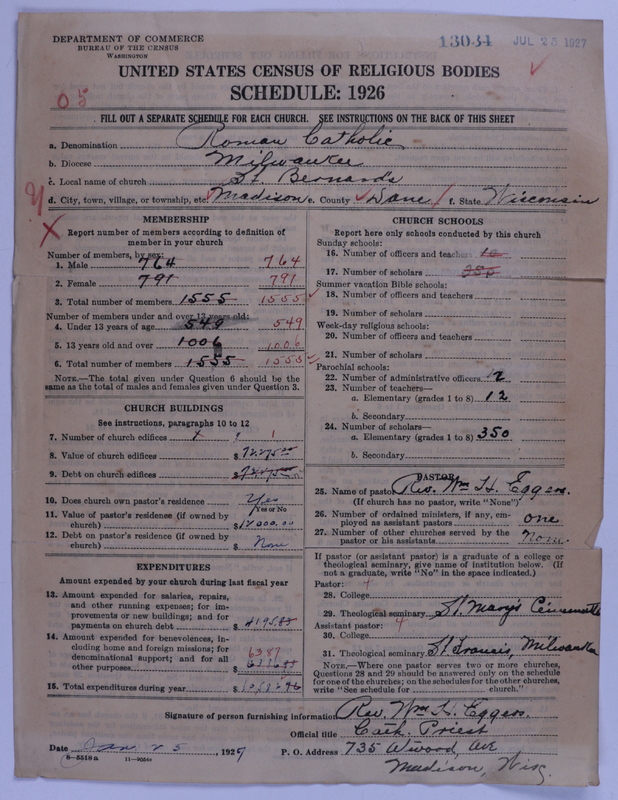 DEPARTMENT OF COMMERCE
BUREAU OF THE CENSUS
WASHINGTON
13034
JUL 25 1927
UNITED STATES CENSUS OF RELIGIOUS BODIES
SCHEDULE: 1926
FILL OUT A SEPARATE SCHEDULE FOR EACH CHURCH. SEE INSTRUCTIONS ON THE BACK OF THIS SHEET
a. Denomination Roman Catholic
b. Diocese Milwaukee
c. Local name of church St. Bernards
d. City, town, village, or township, etc. Madison e. County Dane f. State Wisconsin
MEMBERSHIP
Report number of members according to definition of
member in your church
Number of members, by sex:
1. Male 764 764
2. Female 791 791
3. Total number of members 1555 1555
Number of members under and over 13 years old:
4. Under 13 years of age 549 549
5. 13 years old and over 1006 1006
6. Total number of members 1555 1555
NOTE.—The total given under Question 6 should be the
same as the total of males and females given under Question 3.
CHURCH BUILDINGS
See instructions, paragraphs 10 to 12
7. Number of church edifices 1
8. Value of church edifices $
9. Debt on church edifices $
10. Does church own pastor's residence Yes
Yes or No
11. Value of pastor's residence (if owned by
church) $
12. Debt on pastor's residence (if owned by
church) $ None
EXPENDITURES
Amount expended by your church during last fiscal year
13. Amount expended for salaries, repairs,
and other running expenses; for im-
provements or new buildings; and for
payments on church debt $
14. Amount expended for benevolences, in-
cluding home and foreign missions; for
denominational support; and for all
other purposes $ 6387
15. Total expenditures during year $
CHURCH SCHOOLS
Report here only schools conducted by this church
Sunday schools:
16. Number of officers and teachers
17. Number of scholars 350
Summer vacation Bible schools:
18. Number of officers and teachers
19. Number of scholars
Week-day religious schools:
20. Number of officers and teachers
21. Number of scholars
Parochial schools:
22. Number of administrative officers 2
23. Number of teachers—
a. Elementary (grades 1 to 8) 12
b. Secondary
24. Number of scholars—
a. Elementary (grades 1 to 8) 350
b. Secondary
PASTOR
25. Name of pastor Rev. Wm H. Eggers.
(If church has no pastor, write "None")
26. Number of ordained ministers, if any, em-
ployed as assistant pastors one
27. Number of other churches served by the
pastor or his assistants None
If pastor (or assistant pastor) is a graduate of a college or
theological seminary, give name of institution below. (If
not a graduate, write "No" in the space indicated.)
Pastor:
28. College
29. Theological seminary St. Mary's Cincinnati
Assistant pastor:
30. College
31. Theological seminary St Francis, Milwaukee
NOTE.—Where one pastor serves two or more churches,
Questions 28 and 29 should be answered only on the schedule
for one of the churches; on the schedules for the other churches,
write "See schedule for church."
Signature of person furnishing information Rev. Wm H. Eggers.
Official title Cath. Priest
Date Jan 25, 1927
P. O. Address 735 Atwood Ave
Madison, Wis.
8-5518a 11-9054a